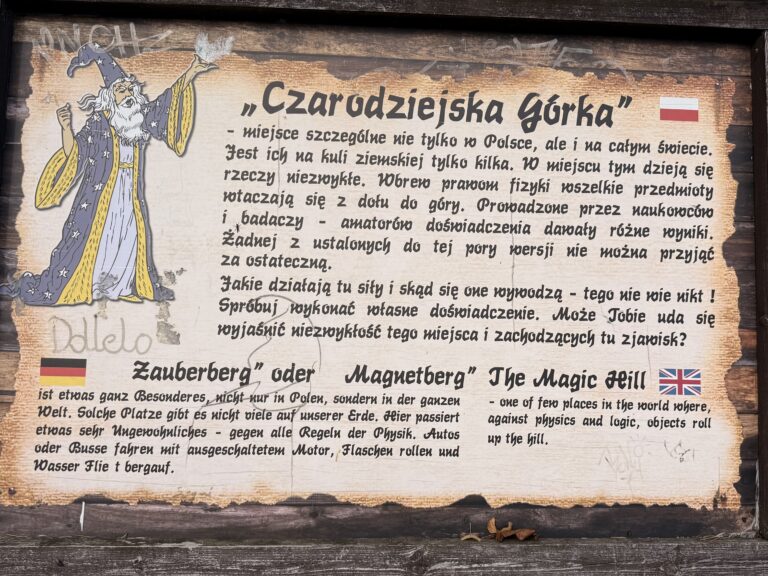 „Czarodziejska Górka”
- miejsce szczególne nie tylko w Polsce, ale i na całym świecie.
Jest ich na kuli ziemskiej tylko kilka. W miejscu tym dzieją się
rzeczy niezwykłe. Wbrew prawom fizyki wszelkie przedmioty
wtaczają się z dołu do góry. Prowadzone przez naukowców
i badaczy - amatorów doświadczenia dawały różne wyniki.
Żadnej z ustalonych do tej pory wersji nie można przyjąć
za ostateczną.
Jakie działają tu siły i skąd się one wywodzą - tego nie wie nikt !
Spróbuj wykonać własne doświadczenie. Może Tobie uda się
wyjaśnić niezwykłość tego miejsca i zachodzących tu zjawisk?
Zauberberg” oder Magnetberg”
ist etwas ganz Besonderes, nicht nur in Polen, sondern in der ganzen
Welt. Solche Platze gibt es nicht viele auf unserer Erde. Hier passiert
etwas sehr Ungewohnliches - gegen alle Regeln der Physik. Autos
oder Busse fahren mit ausgeschaltetem Motor, Flaschen rollen und
Wasser Flie t bergauf.
The Magic Hill
- one of few places in the world where,
against physics and logic, objects roll
up the hill.